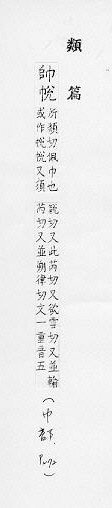 類篇
帥帨
所類切佩巾也
或作帨帨又須
銳切又此芮切又欲雪切又並輸
芮切又並朔律切文一重音五
(巾部,